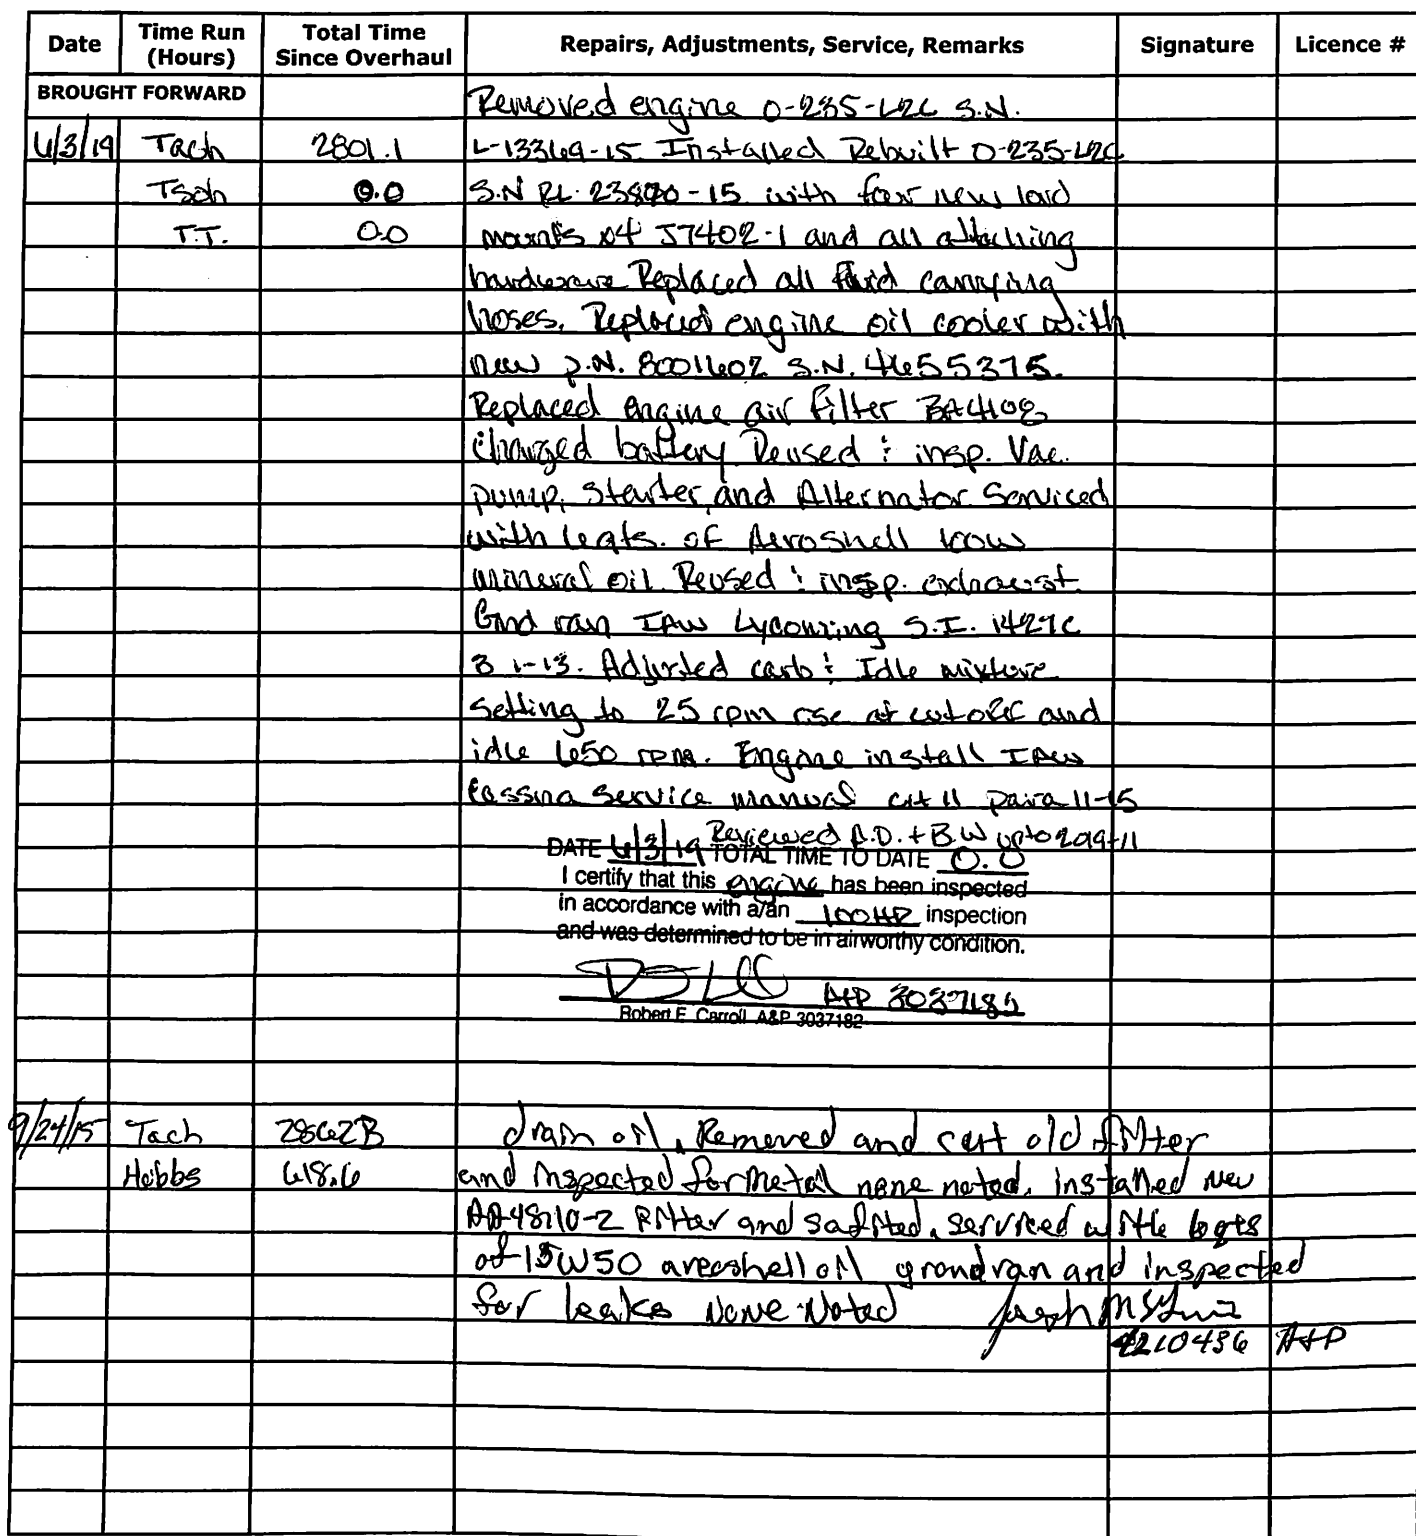 Date Time Run (Hours) Total Time Since Overhaul Repairs, Adjustments, Service, Remarks Signature Licence #
BROUGHT FORWARD Removed engine O-235-L2C S.N.
6/3/19 Tach 2801.1 L-13369-15. Installed Rebuilt O-235-L2C
Tsoh 0.0 S.N RL-23890-15 with four new lord
T.T. 0.0 mounts x4 J7402-1 and all attaching
hardware Replaced all fluid carrying
hoses. Replaced engine oil cooler with
new P.N. 8001602 S.N. 4655375.
Replaced engine air filter BA4108
Charged battery Reused & insp. Vac.
pump, starter, and Alternator Serviced
with 6 qts. of Aeroshell 100W
mineral oil. Reused & insp. exhaust.
Gnd ran IAW Lycoming S.I. 1427C
B 1-13. Adjusted carb & Idle mixture
setting to 25 rpm rise at cutoff and
idle 650 rpm. Engine install IAW
Cessna Service manual CH 11 para 11-15
Reviewed A.D. + B.W up to 2019-11
DATE 6/3/19 TOTAL TIME TO DATE 0.0
I certify that this engine has been inspected
in accordance with a/an 100HR inspection
and was determined to be in airworthy condition.
A&P 3037182
Robert E. Carroll A&P 3037182
9/24/15 Tach 2862.3 drain oil, Removed and cut old filter
Hobbs 618.6 and Inspected for metal none noted. installed new
AA48110-2 filter and safited. serviced with 6qts
of 15W50 areoshell oil grondran and inspected
for leaks None Noted Joseph
4210436 A&P